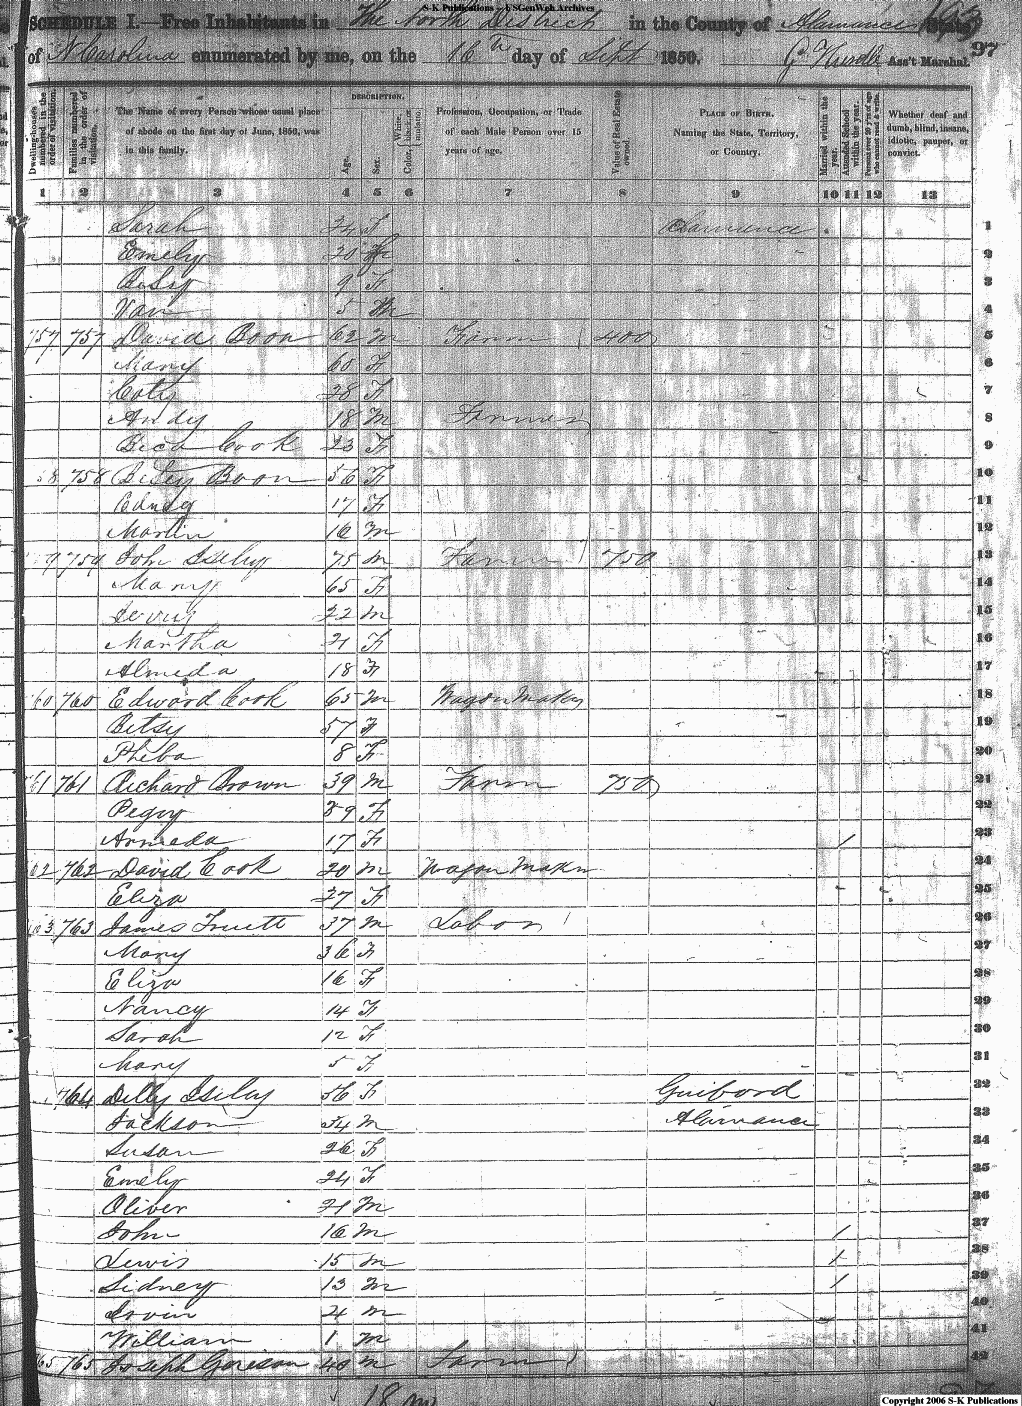 S-K Publications – USGenWeb Archives
SCHEDULE I.—Free Inhabitants in The North District in the County of Alamance State
of N Carolina enumerated by me, on the 16th day of Sept 1850. Ass't Marshal. 97
Dwelling-houses numbered in the order of visitation.
Families numbered in the order of visitation.
The Name of every Person whose usual place of abode on the first day of June, 1850, was in this family.
DESCRIPTION.
Age.
Sex.
Color, White, black, or mulatto.
Profession, Occupation, or Trade of each Male Person over 15 years of age.
Value of Real Estate owned.
PLACE OF BIRTH. Naming the State, Territory, or Country.
Married within the year.
Attended School within the year.
Persons over 20 y'rs of age who cannot read & write.
Whether deaf and dumb, blind, insane, idiotic, pauper, or convict.
1 2 3 4 5 6 7 8 9 10 11 12 13
Sarah F Alamance 1
Emely 2
Betsy 9 F 3
Van 5 m 4
757 757 David Boon 62 m Farm 400 5
Mary 60 F 6
28 F 7
Andy 18 m Farmer 8
Cook 23 F 9
58 758 Betsy Boon 56 F 10
17 F 11
Martin 16 m 12
9 759 John Iseley 75 m Farm 750 13
Mary 65 F 14
22 m 15
Martha 21 F 16
Almeda 18 F 17
60 760 Edward Cook 65 m Wagon Maker 18
Betsy 57 F 19
Pheba 8 F 20
61 761 Richard Brown 39 m Farm 750 21
Pegy 39 F 22
Armeda 17 F 1 23
62 762 David Cook 20 m Wagon Maker 24
Eliza 27 F 25
763 James Truett 37 m Labor 26
Mary 36 F 27
Eliza 16 F 28
Nancy 14 F 29
Sarah 12 F 30
Mary 5 F 31
764 Dilly Isley 56 F Guiford 32
Jackson 34 m Alamance 33
Susan 26 F 34
Emely 24 F 35
Oliver 21 m 36
John 16 m 1 37
Lewis 15 m 1 38
Sidney 13 m 1 39
Irvin 4 m 40
William 1 m 41
65 765 Joseph Gerison 40 m Farm 42
18 m
Copyright 2006 S-K Publications